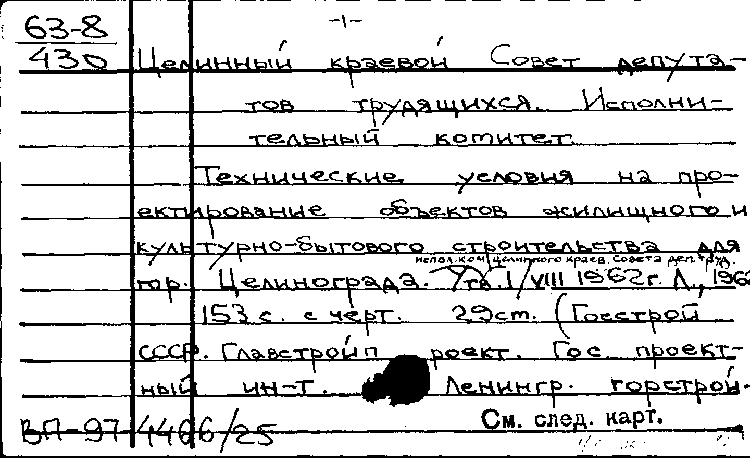 -1-
63-8
430
Целинный краевой Совет депута-
тов трудящихся. Исполни-
тельный комитет.
Технические условия на про-
ектирование объектов жилищного и
культурно-бытового строительства для
испол.ком. Целинного краев. Совета деп. труд.
гор. Целинограда. Утв. 1/VIII 1962 г. Л., 1962
153 с. с черт. 29 см. (Госстрой
СССР. Главстройпроект. Гос проект-
ный ин-т. Ленингр. горстрой-
ВП-97-4466/25
См. след. карт.